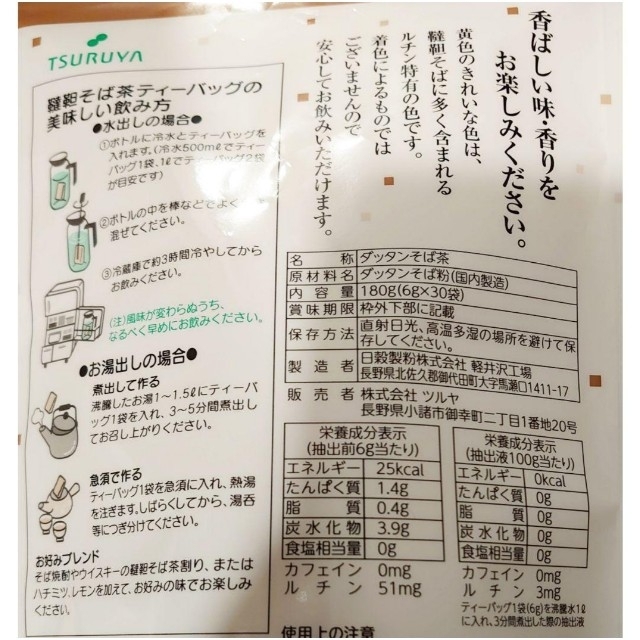 TSURUYA
香ばしい味・香りを
お楽しみください。
黄色のきれいな色は、
韃靼そばに多く含まれる
ルチン特有の色です。
着色によるものでは
ございませんので
安心してお飲みいただけます。
韃靼そば茶ティーバッグの
美味しい飲み方
●水出しの場合●
①ボトルに冷水とティーバッグを
入れます。(冷水500mℓでティー
バッグ1袋、1ℓでティーバッグ2袋
が目安です)
②ボトルの中を棒などでよく
混ぜてください。
③冷蔵庫で約3時間冷やしてから
お飲みください。
(注)風味が変わらぬうち、
なるべく早めにお飲みください。
●お湯出しの場合●
煮出して作る
沸騰したお湯1〜1.5ℓにティーバ
ッグ1袋を入れ、3〜5分間煮出し
てお召し上がりください。
急須で作る
ティーバッグ1袋を急須に入れ、熱湯
を注ぎます。しばらくしてから、湯呑
等につぎ分けてください。
お好みブレンド
そば焼酎やウイスキーの韃靼そば茶割り、または
ハチミツ、レモンを加えて、お好みの味でお楽しみ
ください。
名称 ダッタンそば茶
原材料名 ダッタンそば粉(国内製造)
内容量 180g(6g×30袋)
賞味期限 枠外下部に記載
保存方法 直射日光、高温多湿の場所を避けて保
存してください。
製造者 日穀製粉株式会社 軽井沢工場
長野県北佐久郡御代田町大字馬瀬口1411-17
販売者 株式会社 ツルヤ
長野県小諸市御幸町二丁目1番地20号
栄養成分表示
(抽出前6g当たり)
エネルギー 25kcal
たんぱく質 1.4g
脂質 0.4g
炭水化物 3.9g
食塩相当量 0g
カフェイン 0mg
ルチン 51mg
栄養成分表示
(抽出液100g当たり)
エネルギー 0kcal
たんぱく質 0g
脂質 0g
炭水化物 0g
食塩相当量 0g
カフェイン 0mg
ルチン 3mg
ティーバッグ1袋(6g)を沸騰水1ℓ
に入れ、3分間煮出した際の抽出液
使用上の注意